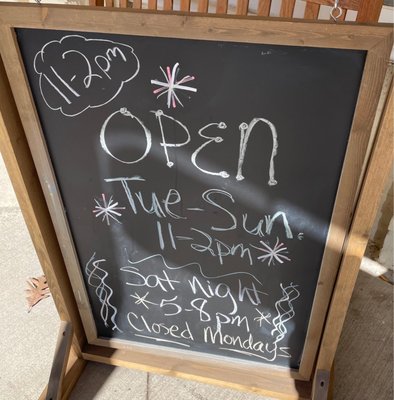 11-2pm
OPEN
Tue-Sun.
11-2pm
Sat night
5-8pm
Closed Mondays